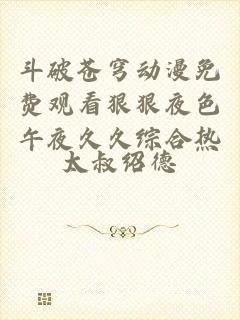 斗破苍穹动漫免
费观看狠狠夜色
午夜久久综合热
太叔绍德